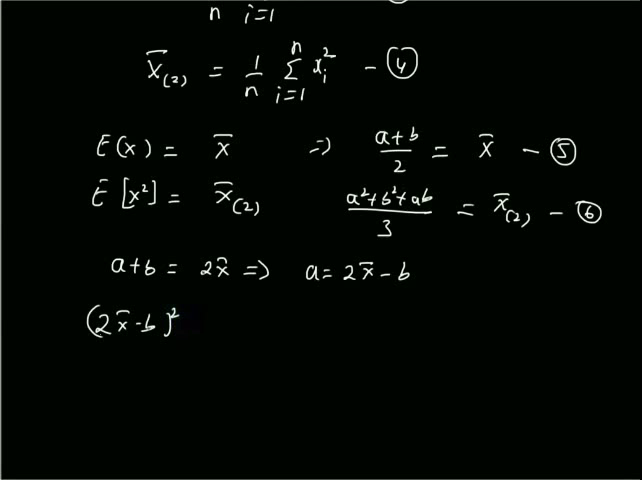 n i=1
x̄(2) = 1/n Σ_{i=1}^{n} x_i² - ④
E(x) = x̄ ⇒ (a+b)/2 = x̄ - ⑤
E[x²] = x̄(2) (a²+b²+ab)/3 = x̄(2) - ⑥
a+b = 2x̄ ⇒ a = 2x̄ - b
(2x̄-b)²